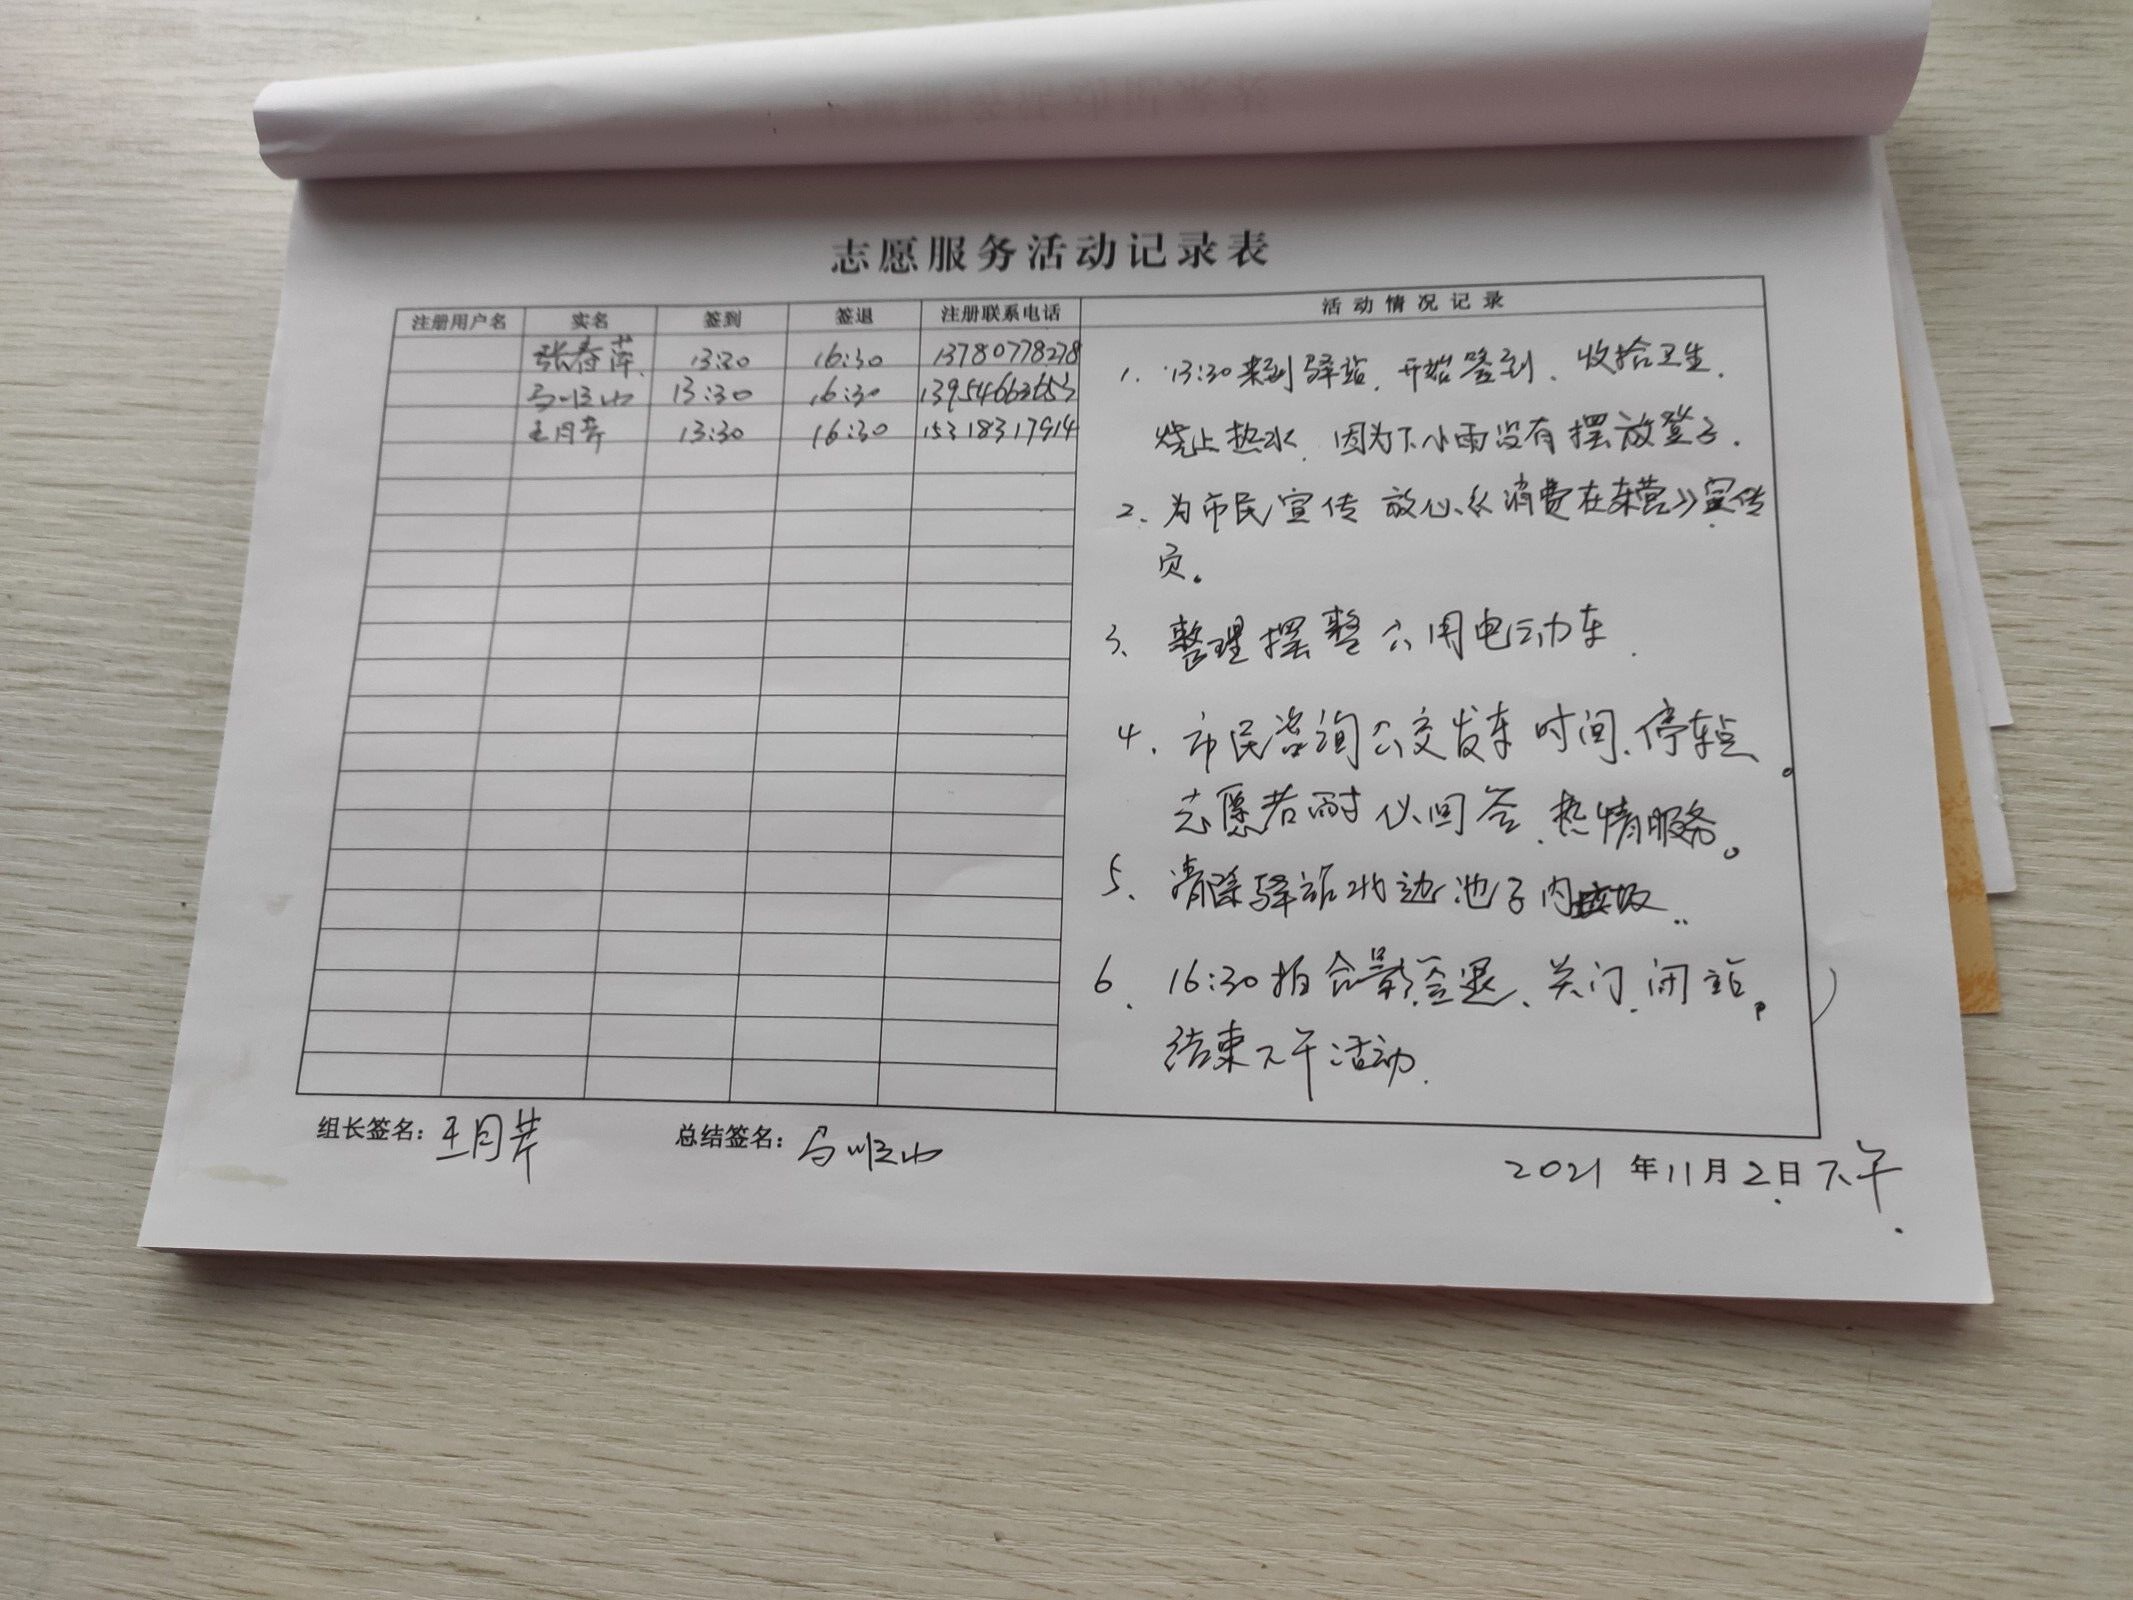 志愿服务活动记录表
注册用户名 实名 签到 签退 注册联系电话 活动情况记录
张春萍 13:30 16:30 13780778278
马顺山 13:30 16:30 13954663653
王月芹 13:30 16:30 15318317914
1. 13:30来到驿站、开始签到、收拾卫生、
烧上热水、因为下小雨没有摆放登子.
2、为市民宣传 放心《消费在东营》宣传
页。
3、整理摆整公用电动车.
4、市民咨询公交发车时间、停车点。
志愿者耐心回答、热情服务。
5、清除驿站北边池子内垃圾..
6、16:30拍合影签退、关门、闭站。
结束下午活动.
组长签名：王月芹 总结签名：马顺山
2021年11月2日下午.